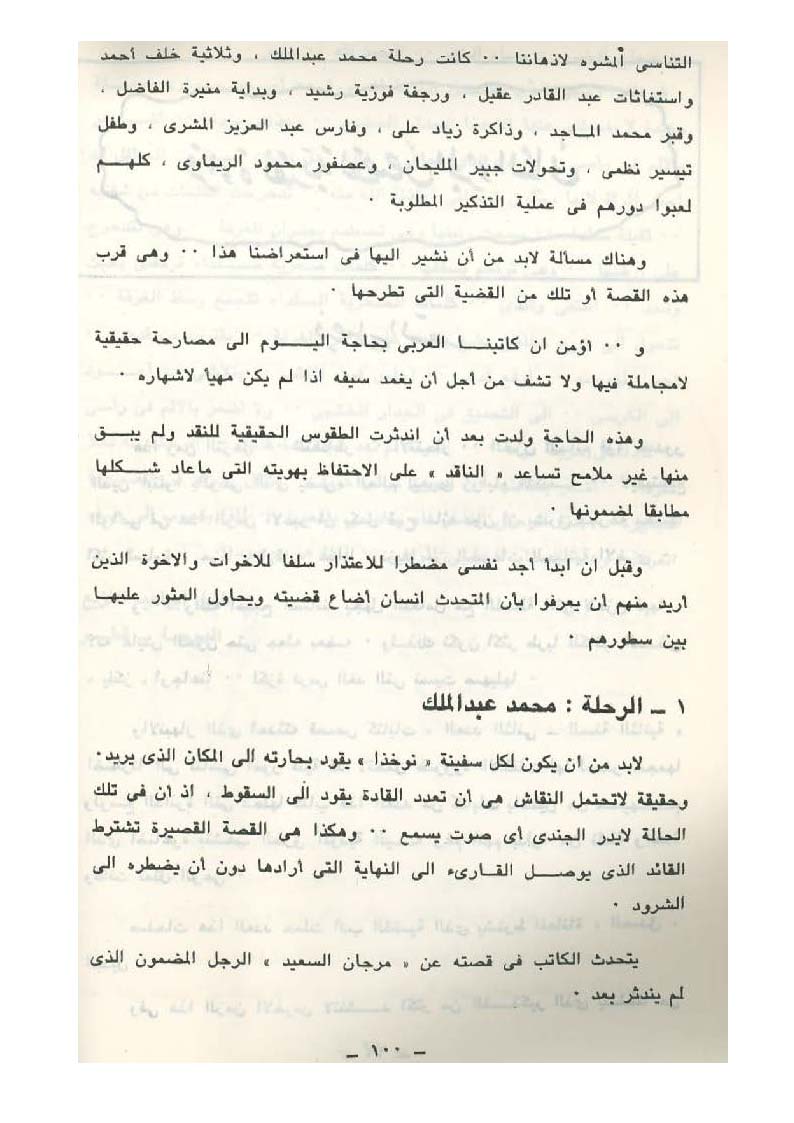 التناسى المشوه لاذهاننا ٠٠ كانت رحلة محمد عبدالملك ، وثلاثية خلف أحمد
واستغاثات عبد القادر عقيل ، ورجفة فوزية رشيد ، وبداية منيرة الفاضل ،
وقبر محمد الماجد ، وذاكرة زياد على ، وفارس عبد العزيز المشرى ، وطفل
تيسير نظمى ، وتحولات جبير المليحان ، وعصفور محمود الريماوى ، كلهم
لعبوا دورهم فى عملية التذكير المطلوبة ٠
وهناك مسألة لابد من أن نشير اليها فى استعراضنا هذا ٠٠ وهى قرب
هذه القصة أو تلك من القضية التى تطرحها ٠
و ٠٠ أؤمن ان كاتبنا العربى بحاجة اليوم الى مصارحة حقيقية
لامجاملة فيها ولا تشف من أجل أن يغمد سيفه اذا لم يكن مهيأ لاشهاره ٠
وهذه الحاجة ولدت بعد أن اندثرت الطقوس الحقيقية للنقد ولم يبق
منها غير ملامح تساعد « الناقد » على الاحتفاظ بهويته التى ماعاد شكلها
مطابقا لمضمونها ٠
وقبل ان ابدأ أجد نفسى مضطرا للاعتذار سلفا للاخوات والاخوة الذين
أريد منهم أن يعرفوا بأن المتحدث انسان أضاع قضيته ويحاول العثور عليها
بين سطورهم ٠
١ ــ الرحلة : محمد عبدالملك
لابد من ان يكون لكل سفينة « نوخذا » يقود بحارته الى المكان الذى يريد٠
وحقيقة لاتحتمل النقاش هى أن تعدد القادة يقود الى السقوط ، اذ أن فى تلك
الحالة لايدر الجندى أى صوت يسمع ٠٠ وهكذا هى القصة القصيرة تشترط
القائد الذى يوصل القارىء الى النهاية التى أرادها دون أن يضطره الى
الشرود ٠
يتحدث الكاتب فى قصته عن « مرجان السعيد » الرجل المضمون الذى
لم يندثر بعد ٠
ــ ١٠٠ ــ